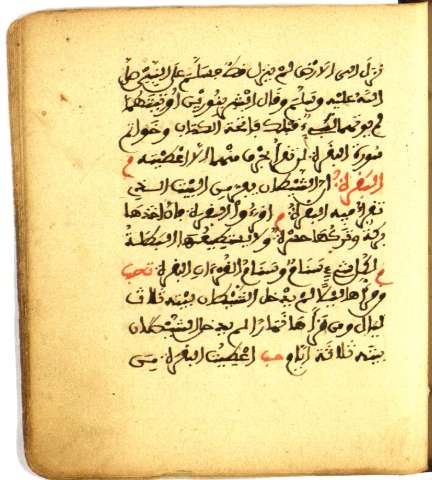 نزل الى الارض لم ينزل قط فسلم على النبي صلى
الله عليه وسلم وقال ابشر بنورين اوتيتهما
لم يوتهما نبي قبلك فاتحة الكتاب وخواتم
سورة البقرة لن تقرا بحرف منهما الا اعطيته م
البقرة ان الشيطان يفر من البيت الذي
تقرا فيه البقرة م اقرءوا البقرة فان اخذها
بركة وتركها حسرة ولا يستطيعها البطلة
م لكل شيء سنام وسنام القرءان البقرة تحب
ومن قراها ليلا لم يدخل الشيطان بيته ثلاث
ليال ومن قراها نهارا لم يدخل الشيطان
بيته ثلاثة ايام حب اعطيت البقرة من